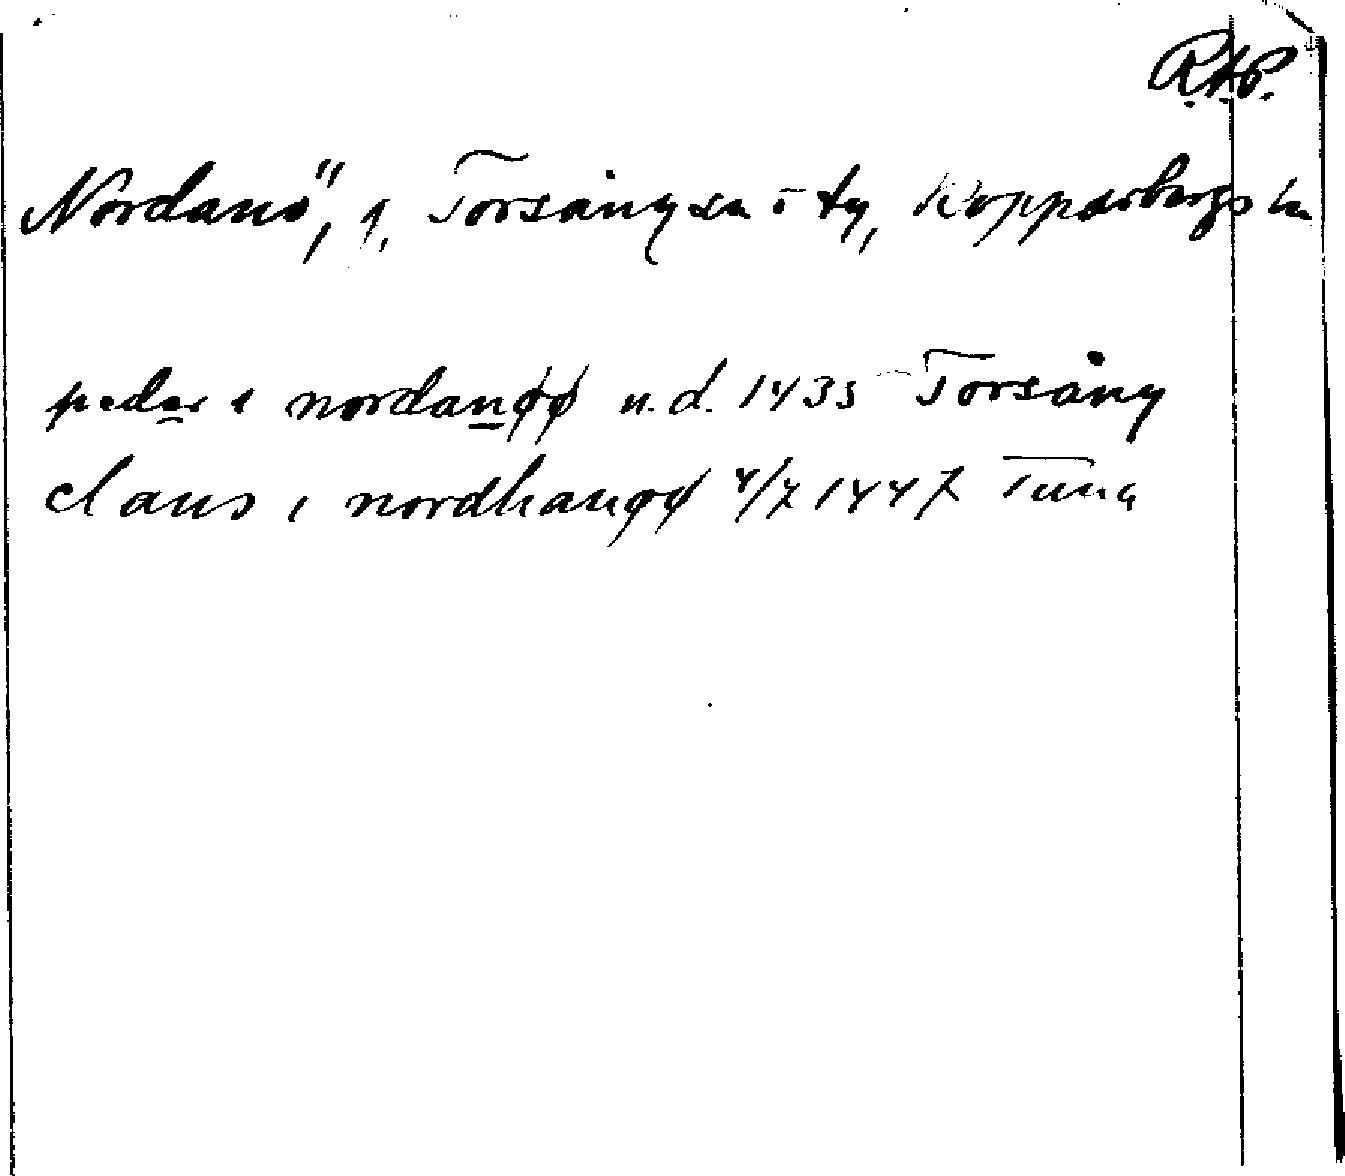 R.A.P.
Nordanö, f, Torsångs sn o tg, Kopparbergs ln
peder i nordanøø u.d. 1435 Torsång
claus i nordhanøø 4/7 1447 Tuna